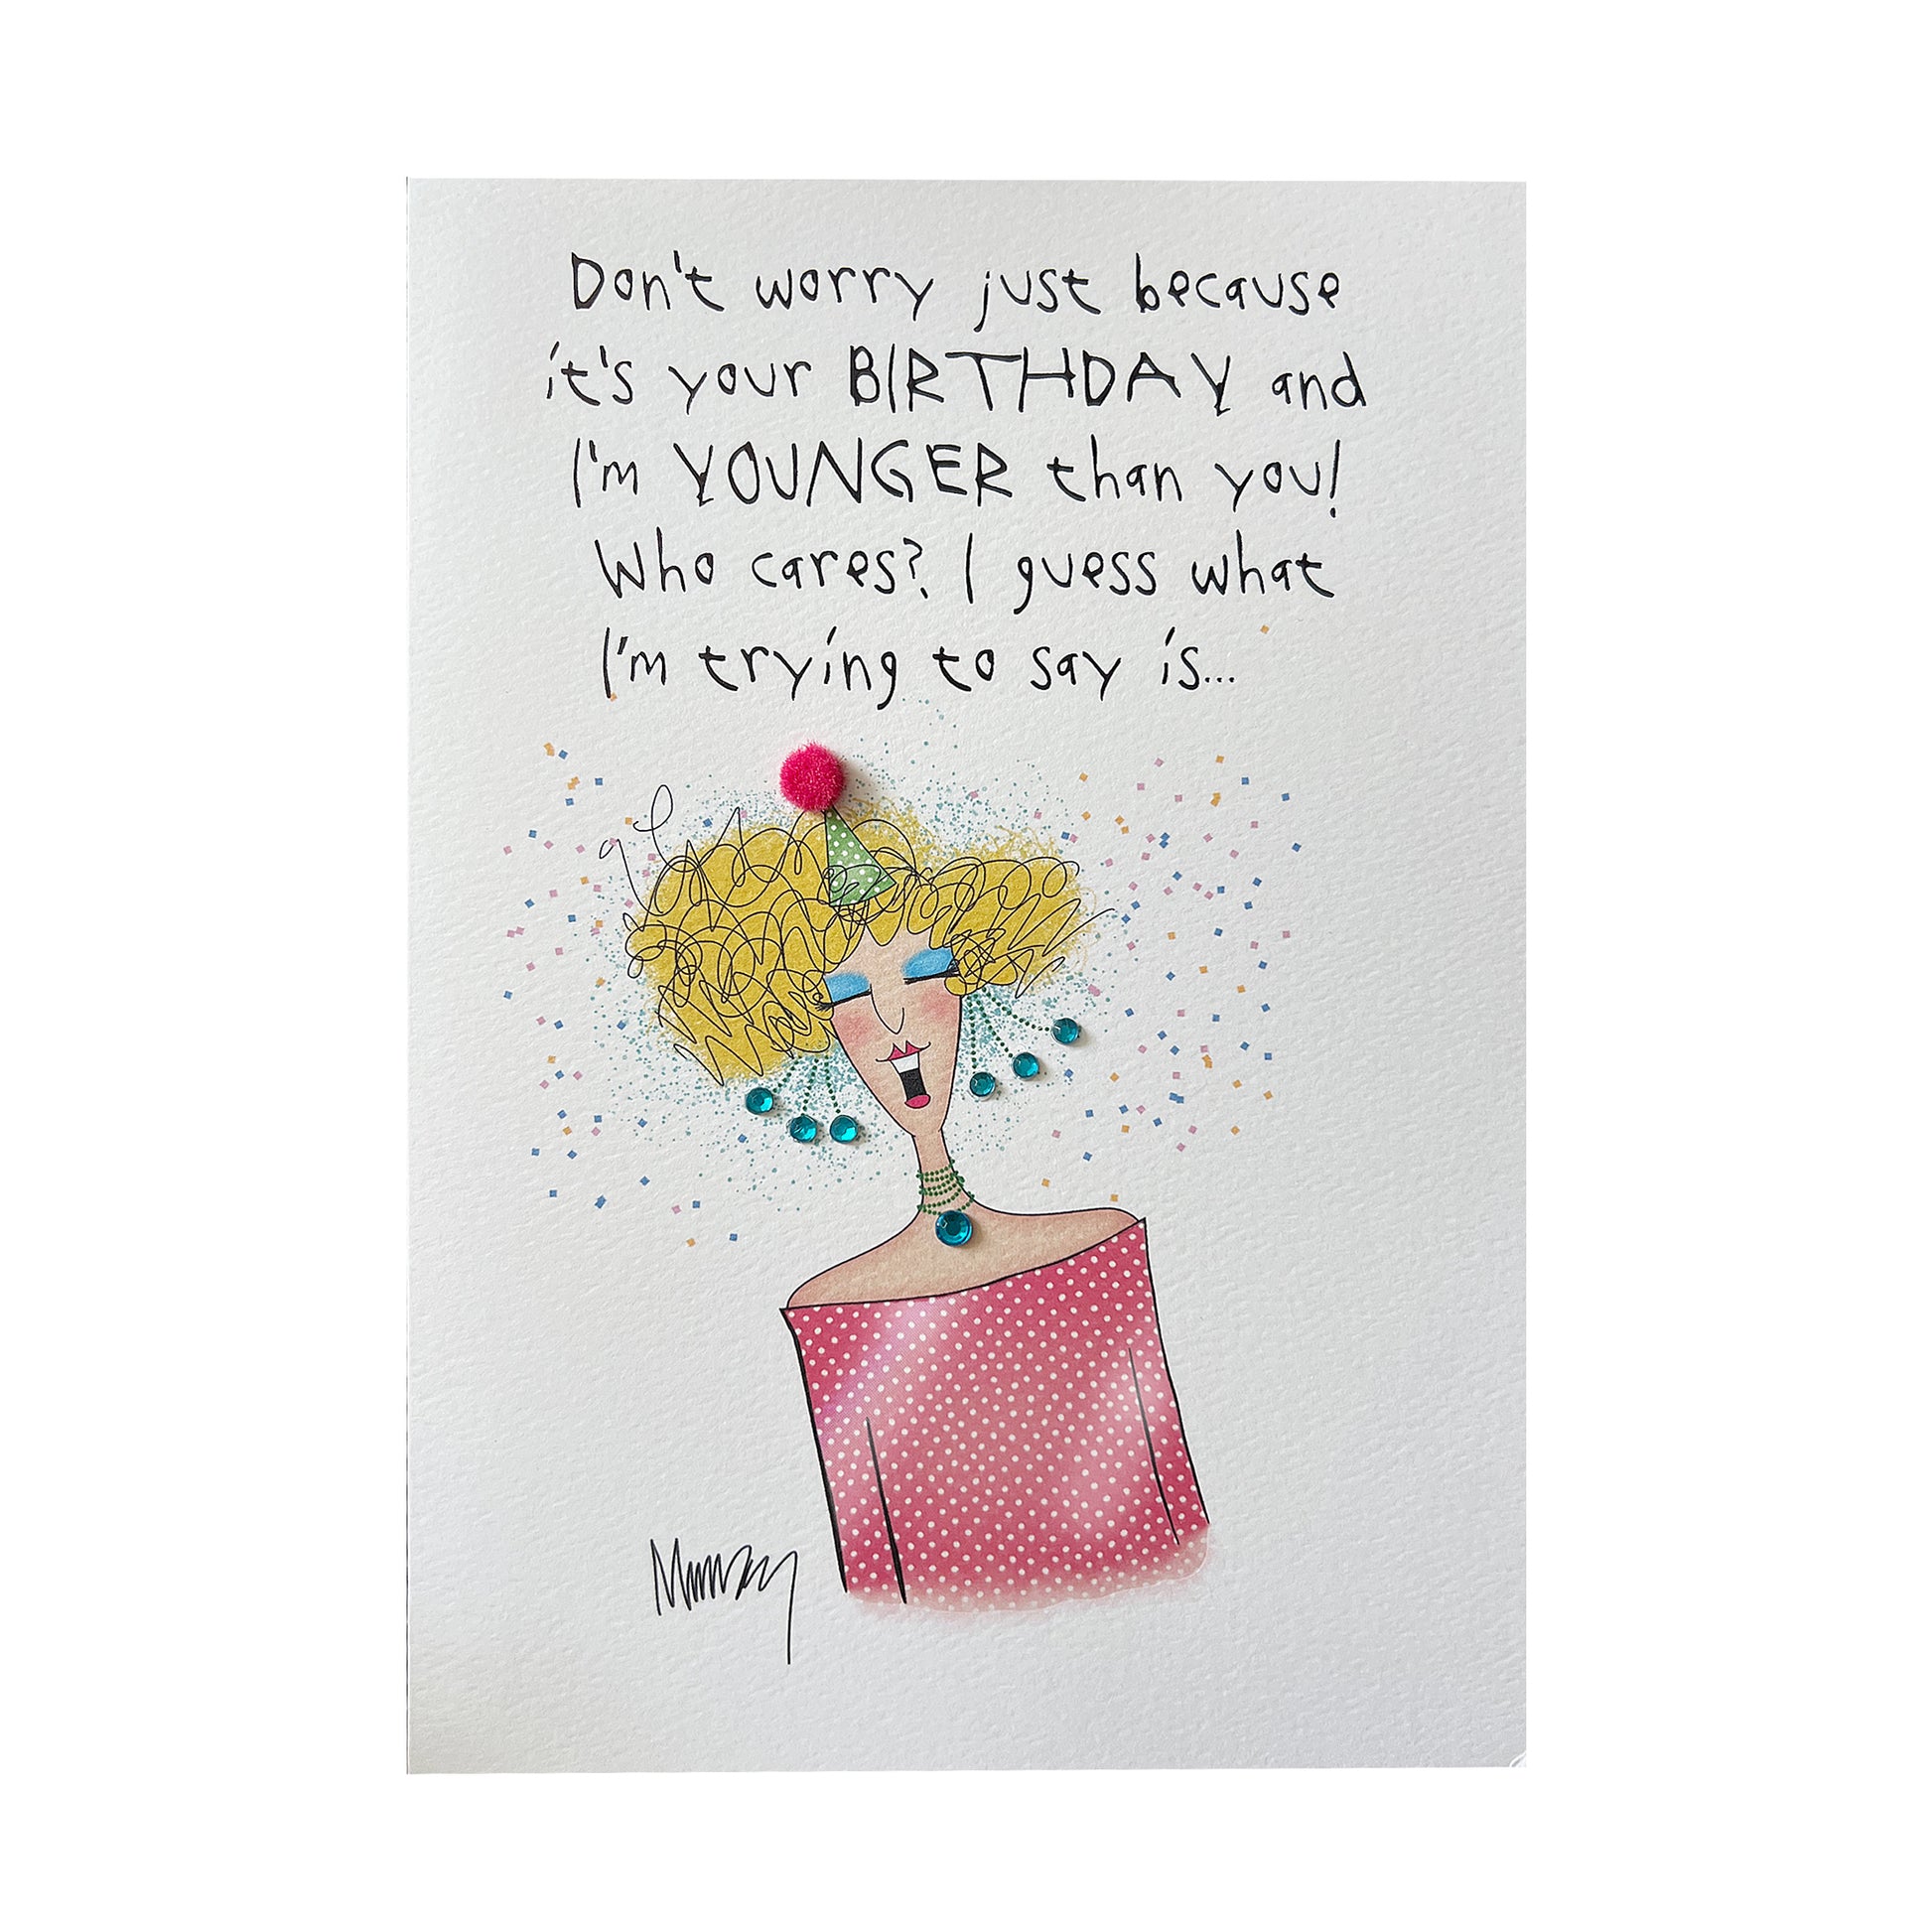 Don't worry just because
it's your BIRTHDAY and
I'm YOUNGER than you!
Who cares? I guess what
I'm trying to say is...
Murray